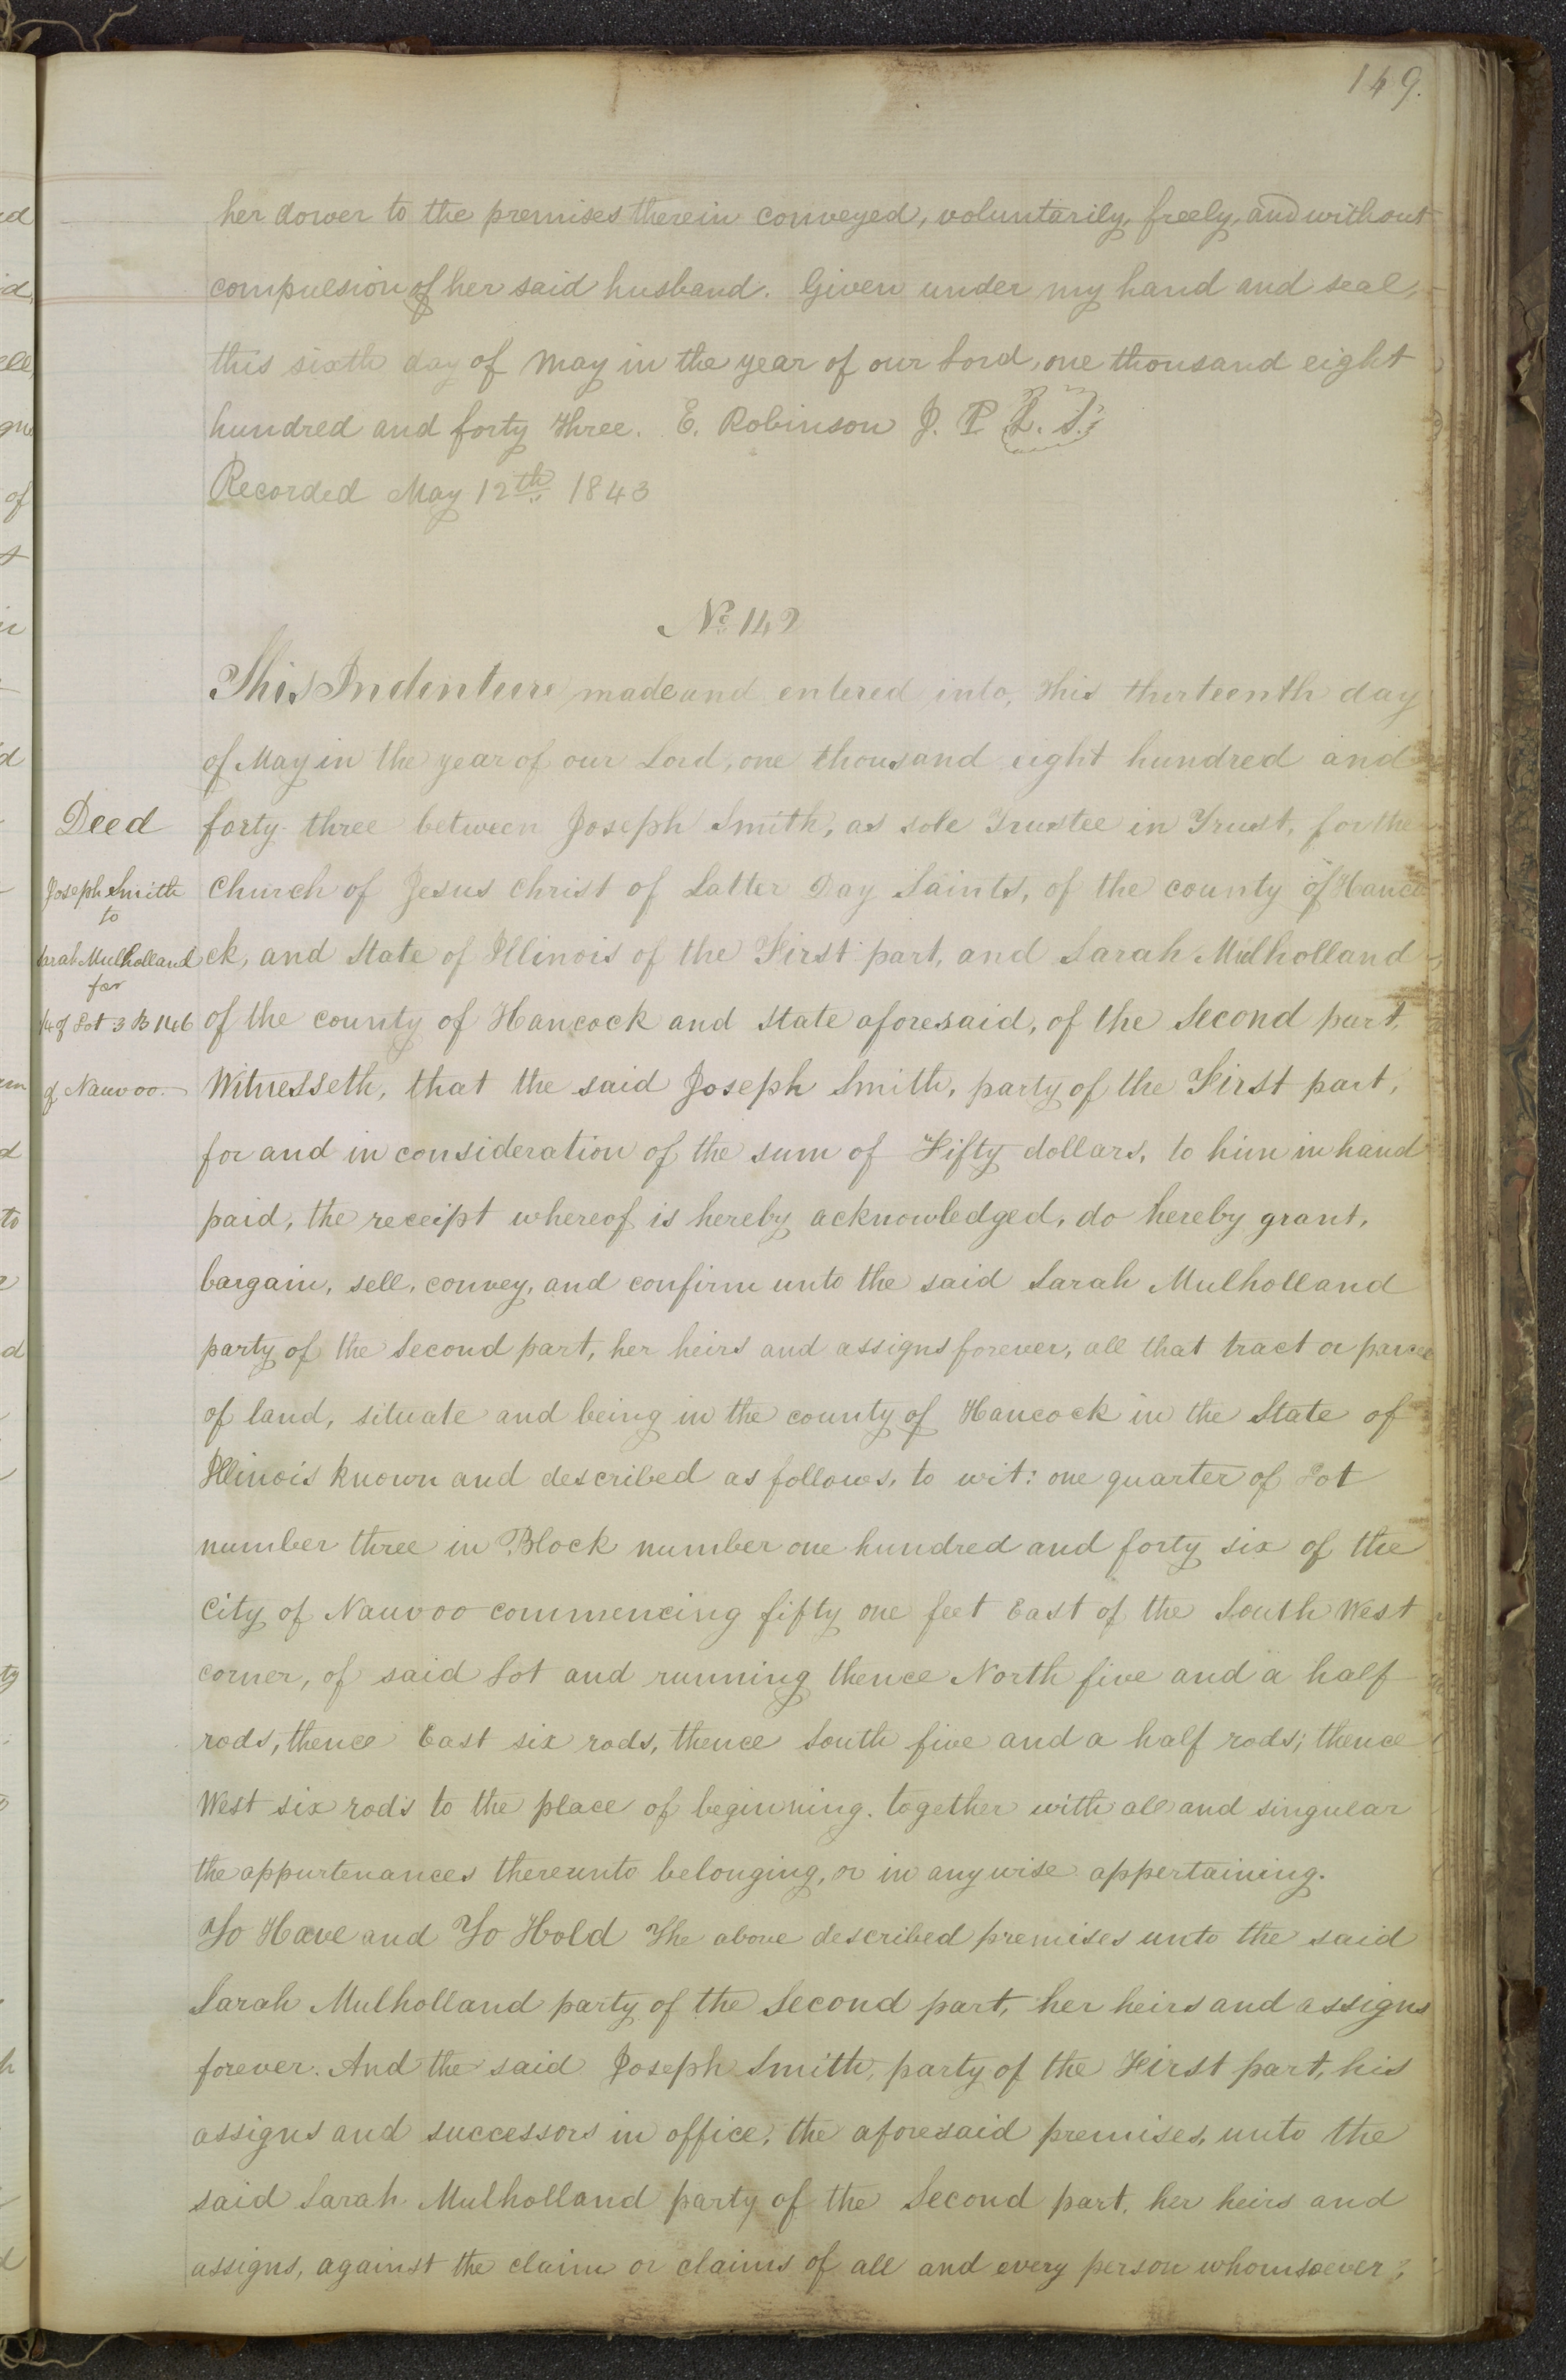 149.
her dower to the premises therein conveyed, voluntarily, freely, and without
compulsion of her said husband. Given under my hand and seal,
this sixth day of May in the year of our Lord, one thousand eight
hundred and forty three. E. Robinson J. P. L. S.
Recorded May 12th 1843
No. 142
This Indenture made and entered into, this thirteenth day
of May in the year of our Lord, one thousand eight hundred and
forty three between Joseph Smith, as sole Trustee in Trust, for the
Church of Jesus Christ of Latter Day Saints, of the county of Hanco
ck, and State of Illinois of the First part, and Sarah Mulholland
of the county of Hancock and State aforesaid, of the Second part,
Witnesseth, that the said Joseph Smith, party of the First part,
for and in consideration of the sum of Fifty dollars, to him in hand
paid, the receipt whereof is hereby acknowledged, do hereby grant,
bargain, sell, convey, and confirm unto the said Sarah Mulholland
party of the Second part, her heirs and assigns forever, all that tract or parcel
of land, situate and being in the county of Hancock in the State of
Illinois known and described as follows, to wit: one quarter of Lot
number three in Block number one hundred and forty six of the
City of Nauvoo commencing fifty one feet East of the South West
corner, of said Lot and running thence North five and a half
rods, thence East six rods, thence South five and a half rods; thence
West six rods to the place of beginning. together with all and singular
the appurtenances thereunto belonging, or in any wise appertaining.
To Have and To Hold The above described premises unto the said
Sarah Mulholland party of the Second part, her heirs and assigns
forever. And the said Joseph Smith, party of the First part, his
assigns and successors in office, the aforesaid premises, unto the
said Sarah Mulholland party of the Second part, her heirs and
assigns, against the claim or claims of all and every person whomsoever;
Deed
Joseph Smith
to
Sarah Mulholland
for
1/4 of Lot 3 B 146
of Nauvoo.